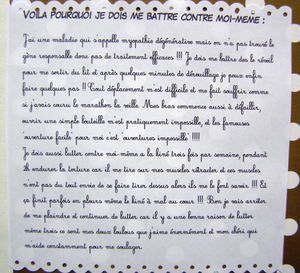 VOILA POURQUOI JE DOIS ME BATTRE CONTRE MOI-MEME :
J'ai une maladie qui s'appelle myopathie dégénérative mais on n'a pas trouvé le
gène responsable donc pas de traitement efficaces !!! Je dois me battre dès le réveil
pour me sortir du lit et après quelques minutes de dérouillage je peux enfin
faire quelques pas !! Tout déplacement m'est difficile et me fait souffrir comme
si j'avais couru le marathon la veille. Mes bras commence aussi à défaillir,
ouvrir une simple bouteille m'est pratiquement impossible, et les fameuses
"ouverture facile" pour moi c'est "ouvertures impossible" !!!!
Je dois aussi lutter contre moi-même a la kiné trois fois par semaine, pendant
1h endurer la torture car il me tire sur mes muscles rétractés et ces muscles
n'ont pas du tout envie de se faire tirer dessus alors ils me le font savoir !!! Et
ça finit parfois en pleurs même le kiné à mal au cœur !!! Bon je vais arrêter
de me plaindre et continuer de lutter car il y a une bonne raison de lutter
même trois ce sont mes deux loulous que j'aime énormément et mon chéri qui
m'aide constamment pour me soulager.